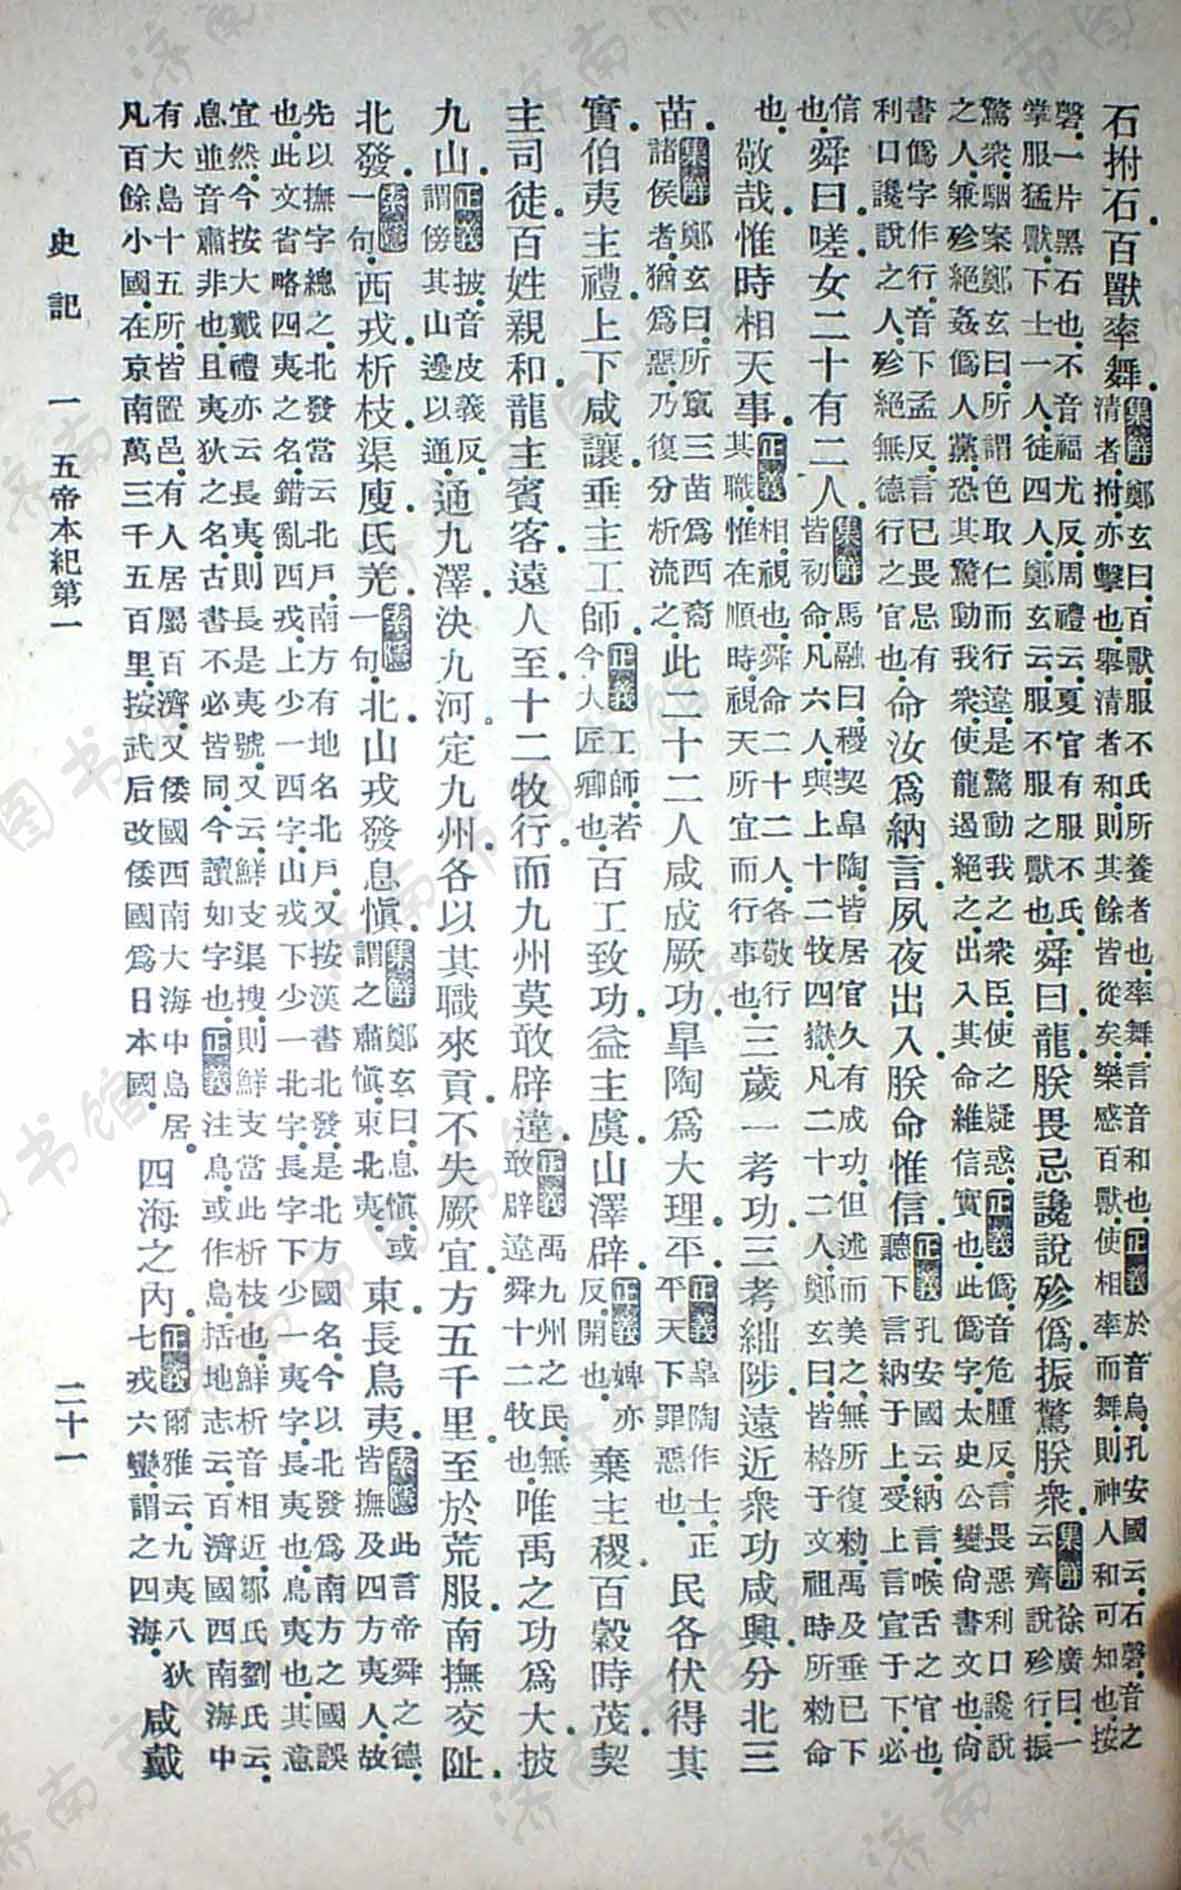 石拊石。百獸率舞。集解鄭玄曰。百獸。服不氏所養者也。率舞。言音和也。正義於音烏。孔安國云。石磬。音之清者。拊亦擊也。舉清者和則其餘皆從矣。樂感百獸。使相率而舞。則神人和可知也。按
磬。一片黑石也。不音福尤反。周禮云。夏官有服不氏。掌服猛獸。下士一人。徒四人。鄭玄云。服不服之獸也。舜曰。龍。朕畏忌讒說殄僞。振驚朕衆。集解徐廣曰。一云。齊說殄行。振
驚衆。駰案鄭玄曰。所謂色取仁而行遠。是驚動我之衆臣。使之疑惑。正義僞。音危腄反。言畏惡利口讒說之人。兼殄絕姦僞人黨。恐其驚動我衆。使龍遏絕之。出入其命。維信實也。此僞字太史公變尙書文也。尙
書僞字作行。音下孟反。言己畏忌有利口讒說之人。殄絕無德行之官也。命汝爲納言。夙夜出入。朕命惟信。正義孔安國云。納言。喉舌之官也。聽下言納于上。受上言宣于下。必
信也。舜曰。嗟。女二十有二人。集解馬融曰。稷契皐陶。皆居官久。有成功。但述而美之。無所復勑。禹及垂已下皆初命。凡六人。與上十二牧四嶽。凡二十二人。鄭玄曰。皆格于文祖時所勑命
也。敬哉。惟時相天事。正義相。視也。舜命二十二人。各敬行其職。惟在順時。視天所宜而行事也。三歲一考功。三考絀陟。遠近衆功咸興。分北三
苗。集解鄭玄曰。所竄三苗爲西裔諸侯者。猶爲惡。乃復分析流之。此二十二人咸成厥功。皐陶爲大理。平。正義皐陶作士。正平天下罪惡也。民各伏得其
實。伯夷主禮。上下咸讓。垂主工師。正義工師。若今大匠卿也。百工致功。益主虞。山澤辟。正義婢亦反。開也。棄主稷。百穀時茂。契
主司徒。百姓親和。龍主賓客。遠人至。十二牧行。而九州莫敢辟違。正義禹九州之民。無敢辟違舜十二牧也。唯禹之功爲大。披
九山。正義披。音皮義反。謂傍其山邊以通。通九澤。決九河。定九州。各以其職來貢。不失厥宜。方五千里。至於荒服。南撫交阯。
北發。索隱一句。西戎析枝。渠廋氏羌。索隱一句。北。山戎發息愼。集解鄭玄曰。息愼。或謂之肅愼。東北夷。東。長鳥夷。索隱此言帝舜之德。皆撫及四方夷人。故
先以撫字總之。北發當云北戶。南方有地名北戶。又按漢書北發。是北方國名。今以北發爲南方之國誤也。此文省略四夷之名。錯亂。西戎上少一西字。山戎下少一北字。長字下少一夷字。長夷也。鳥夷也。其意
宜然。今按大戴禮亦云長夷。則長是夷號。又云鮮支渠搜。則鮮支當此析枝也。鮮析音相近。鄒氏劉氏云。息並音肅。非也。且夷狄之名。古書不必皆同。今讀如字也。正義注鳥。或作島。括地志云。百濟國西南海中
有大島十五所。皆置邑。有人居。屬百濟。又倭國西南大海中島居。凡百餘小國。在京南萬三千五百里。按武后改倭國爲日本國。四海之內。正義爾雅云。九夷八狄七戎六蠻。謂之四海。咸戴
史記　一　五帝本紀第一　二十一